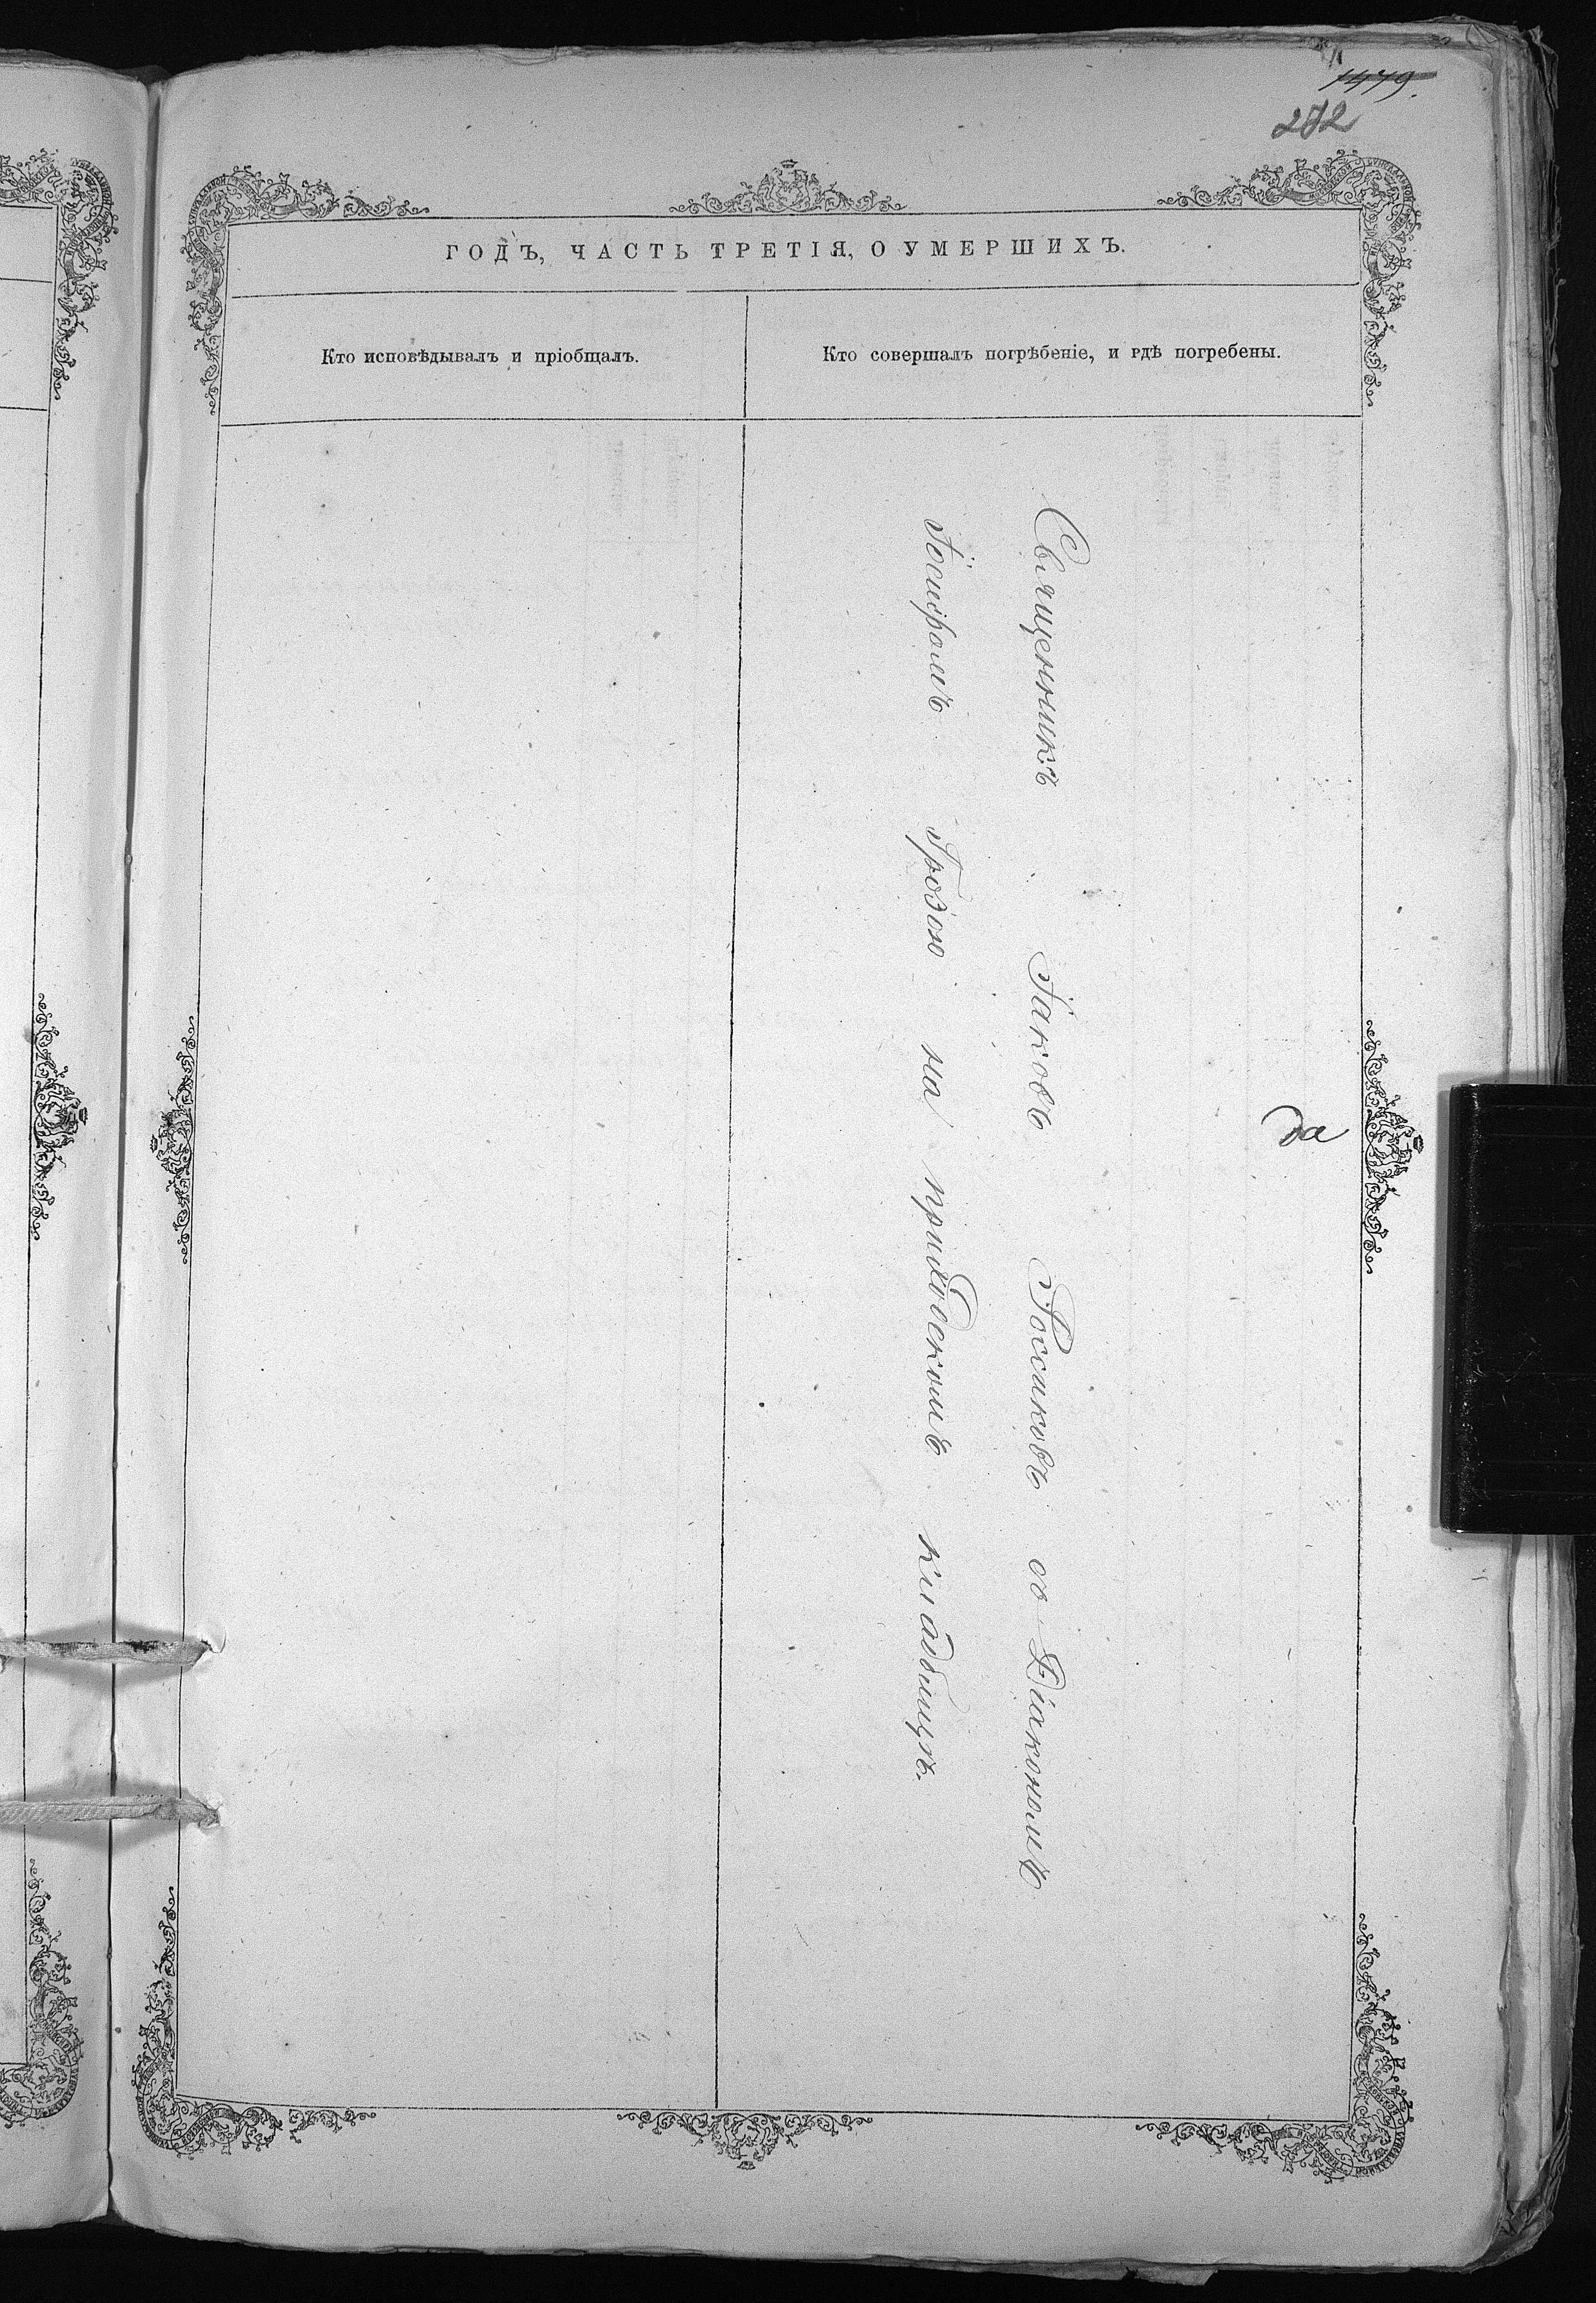 1479.
272
ГОДЪ, ЧАСТЬ ТРЕТІЯ, О УМЕРШИХЪ.
Кто исповѣдывалъ и пріобщалъ.
Кто совершалъ погрѣбеніе, и гдѣ погребены.
Священникъ Іаковъ Россиковъ съ Діакономъ
Іосифомъ Грозою на приходскомъ кладбищѣ.
да